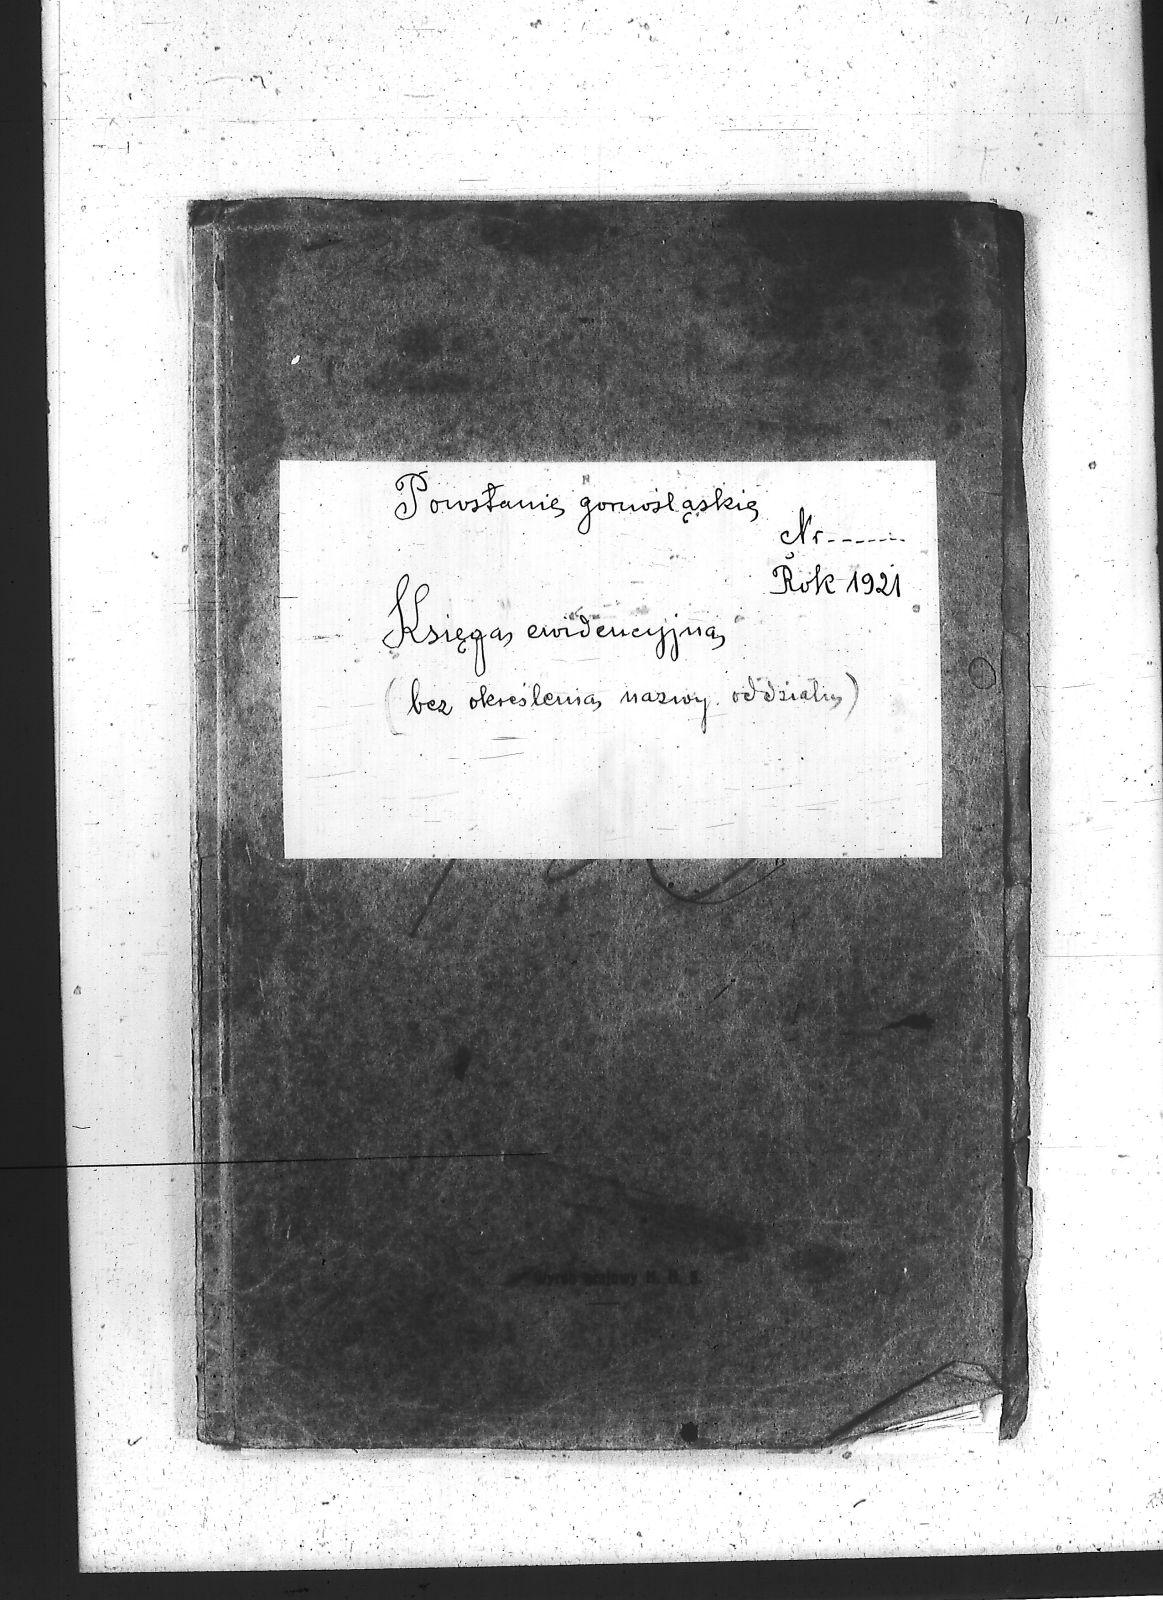 Powstanie gornośląskie
Nr------
Rok 1921
Księga ewidencyjna
(bez określenia nazwy oddziału)
Wyrób krajowy